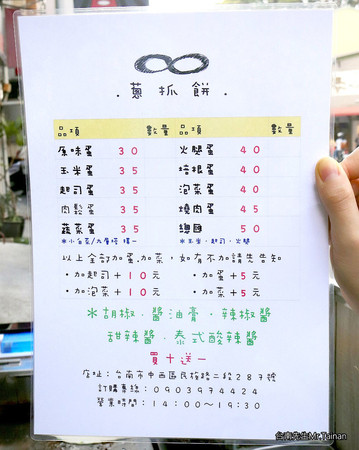 ．蔥抓餅．
品項 數量 品項 數量
原味蛋 30 火腿蛋 40
玉米蛋 35 培根蛋 40
起司蛋 35 泡菜蛋 40
肉鬆蛋 35 燒肉蛋 45
蔬菜蛋 35 總匯 50
＊小白菜/九層塔 擇一 ＊玉米．起司．火腿
以上全部加蛋.加菜，如有不加請先告知
．加起司＋10元 ．加蛋＋5元
．加泡菜＋10元 ．加菜＋5元
＊胡椒．醬油膏．辣椒醬
甜辣醬．泰式酸辣醬
買十送一
店址：台南市中西區民族路二段287號
訂購專線：0903974424
營業時間：14:00～19:30
台南先生Mr.Tainan